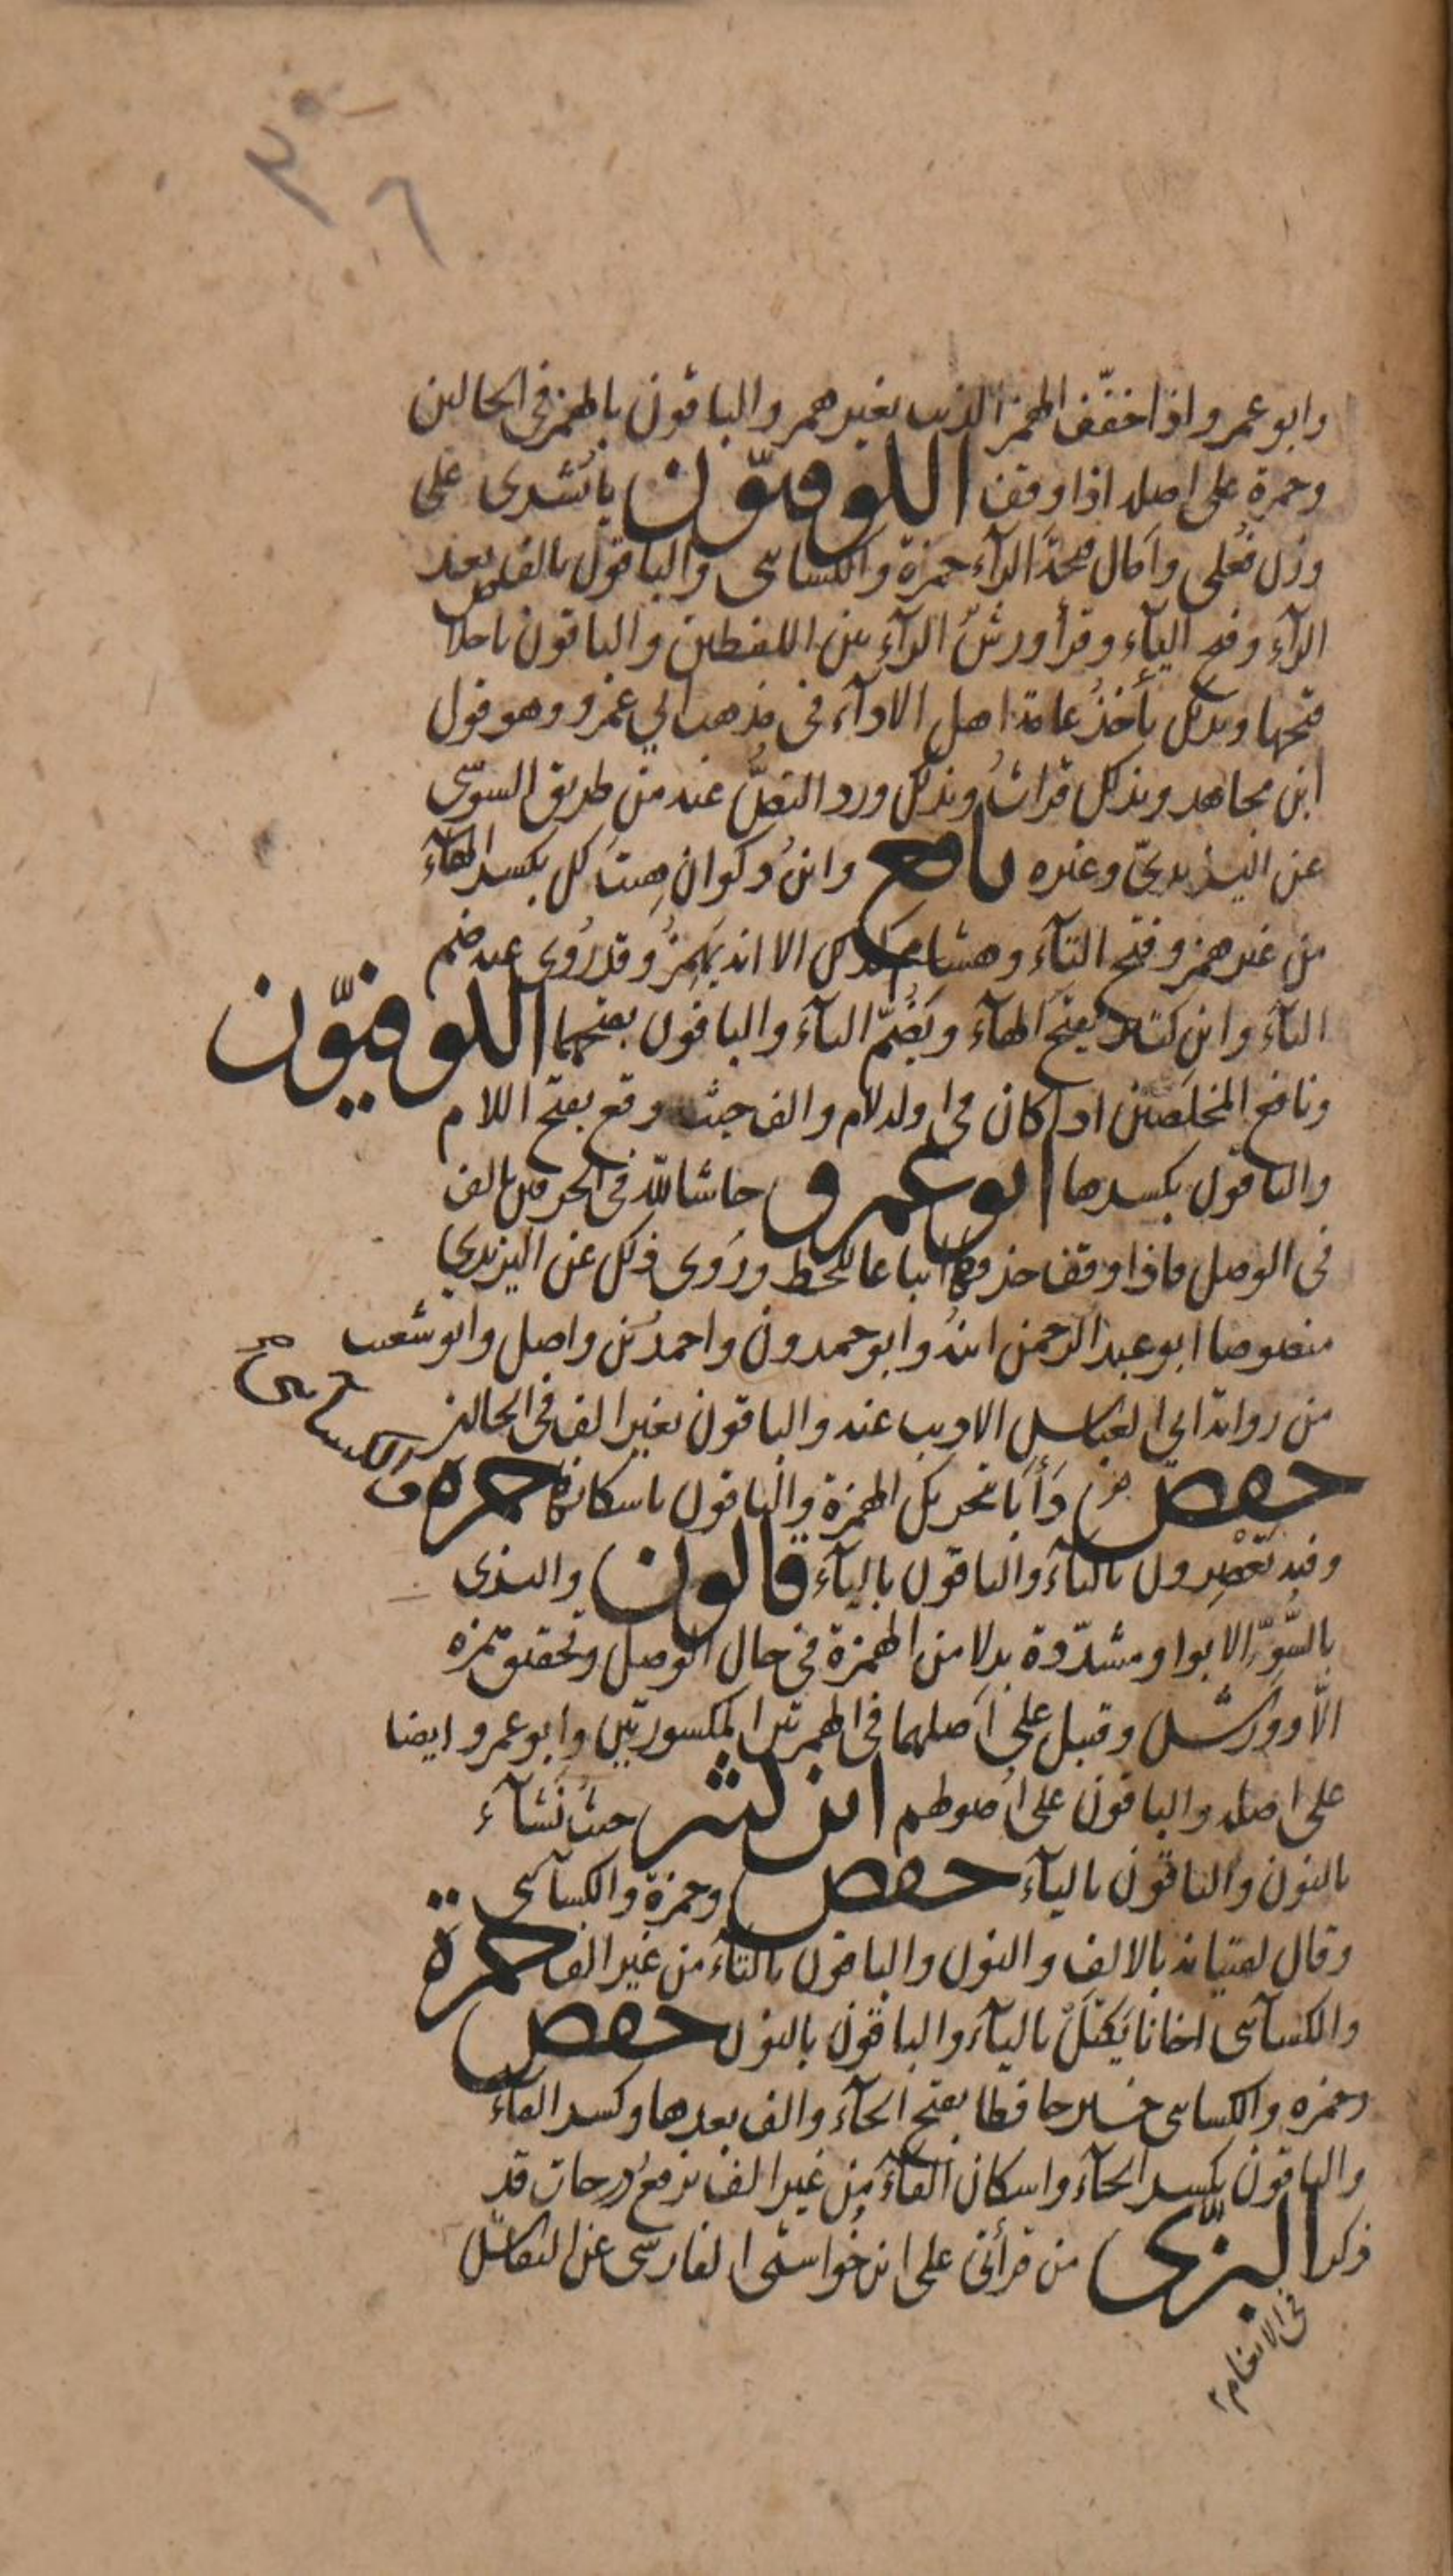 ٣٦
وابو عمرو اذا خفّف الهمز الذيب بغير همز والباقون بالهمز في الحالين
وحمزة على اصله اذا وقف الكوفيّون يا بُشرى على
وزن فُعلى وامال فتحة الرآء حمزة والكسائى والباقون بالف بعد
الرآء وفتح اليآء وقرأ ورشٌ الرآء بين اللفظين والباقون باخلاص
فتحها وبذلك يأخذُ عامة اهل الادآء فى مذهب ابي عمرو وهو قول
ابن مجاهد وبذلك قراتُ وبذلك ورد النصُّ عنه من طريق السوسّى
عن اليزيديّ وغيره نافع وابنُ ذكوان هِيتَ لك بكسر الهآء
من غير همز وفتح التآء وهشام كذلك الا انه يهمِزُ وقد رُوى عنه ضم
التآء وابن كثير بفتح الهآء ويَضُمّ التآء والباقون بفتحهما الكوفيّون
ونافع المخلَصين اذا كان فى اوله لام والف حيث وقع بفتح اللام
والباقون بكسرها ابو عمرو حاشا لله فى الحرفين بالف
فى الوصل فاذا وقف حذفها اتباعا للخط ورُوى ذلك عن اليزيدي
منصوصا ابو عبد الرحمن ابنهُ وابو حمدون واحمدُ بن واصل وابو شعيب
من رواية ابي العباس الاديب عنه والباقون بغير الف فى الحالين
حفص دَأَبًا بتحريك الهمزة والباقون باسكانها حمزه والكسائى
وفيه تَعْصِرون بالتآء والباقون باليآء قالون والبزى
بالسُّوِّ الا بواو مشدّدة بدلا من الهمزة فى حال الوصل وتحقيق همزه
الّا وورش وقنبل على اَصلهما فى الهمزتين المكسورتين وابو عمرو ايضا
على اصله والباقون على اُصولهم ابن كثير حيثُ نَشآء
بالنون والباقون باليآء حفص وحمزة والكسآئى
وقال لفتيانه بالالف والنون والباقون بالتآء من غير الف حمزة
والكسآئى اخانا يَكتَلْ باليآء والباقون بالنون حفص
وحمزه والكسائى خير حافظا بفتح الحآء والف بعدها وكسر الفآء
والباقون بكسر الحآء واسكان الفآء من غير الف نرفعُ درجات قد
ذكر البزّى من قرأتى على ابن خُواستى الفارسّى عن النقاش
فى الانعام